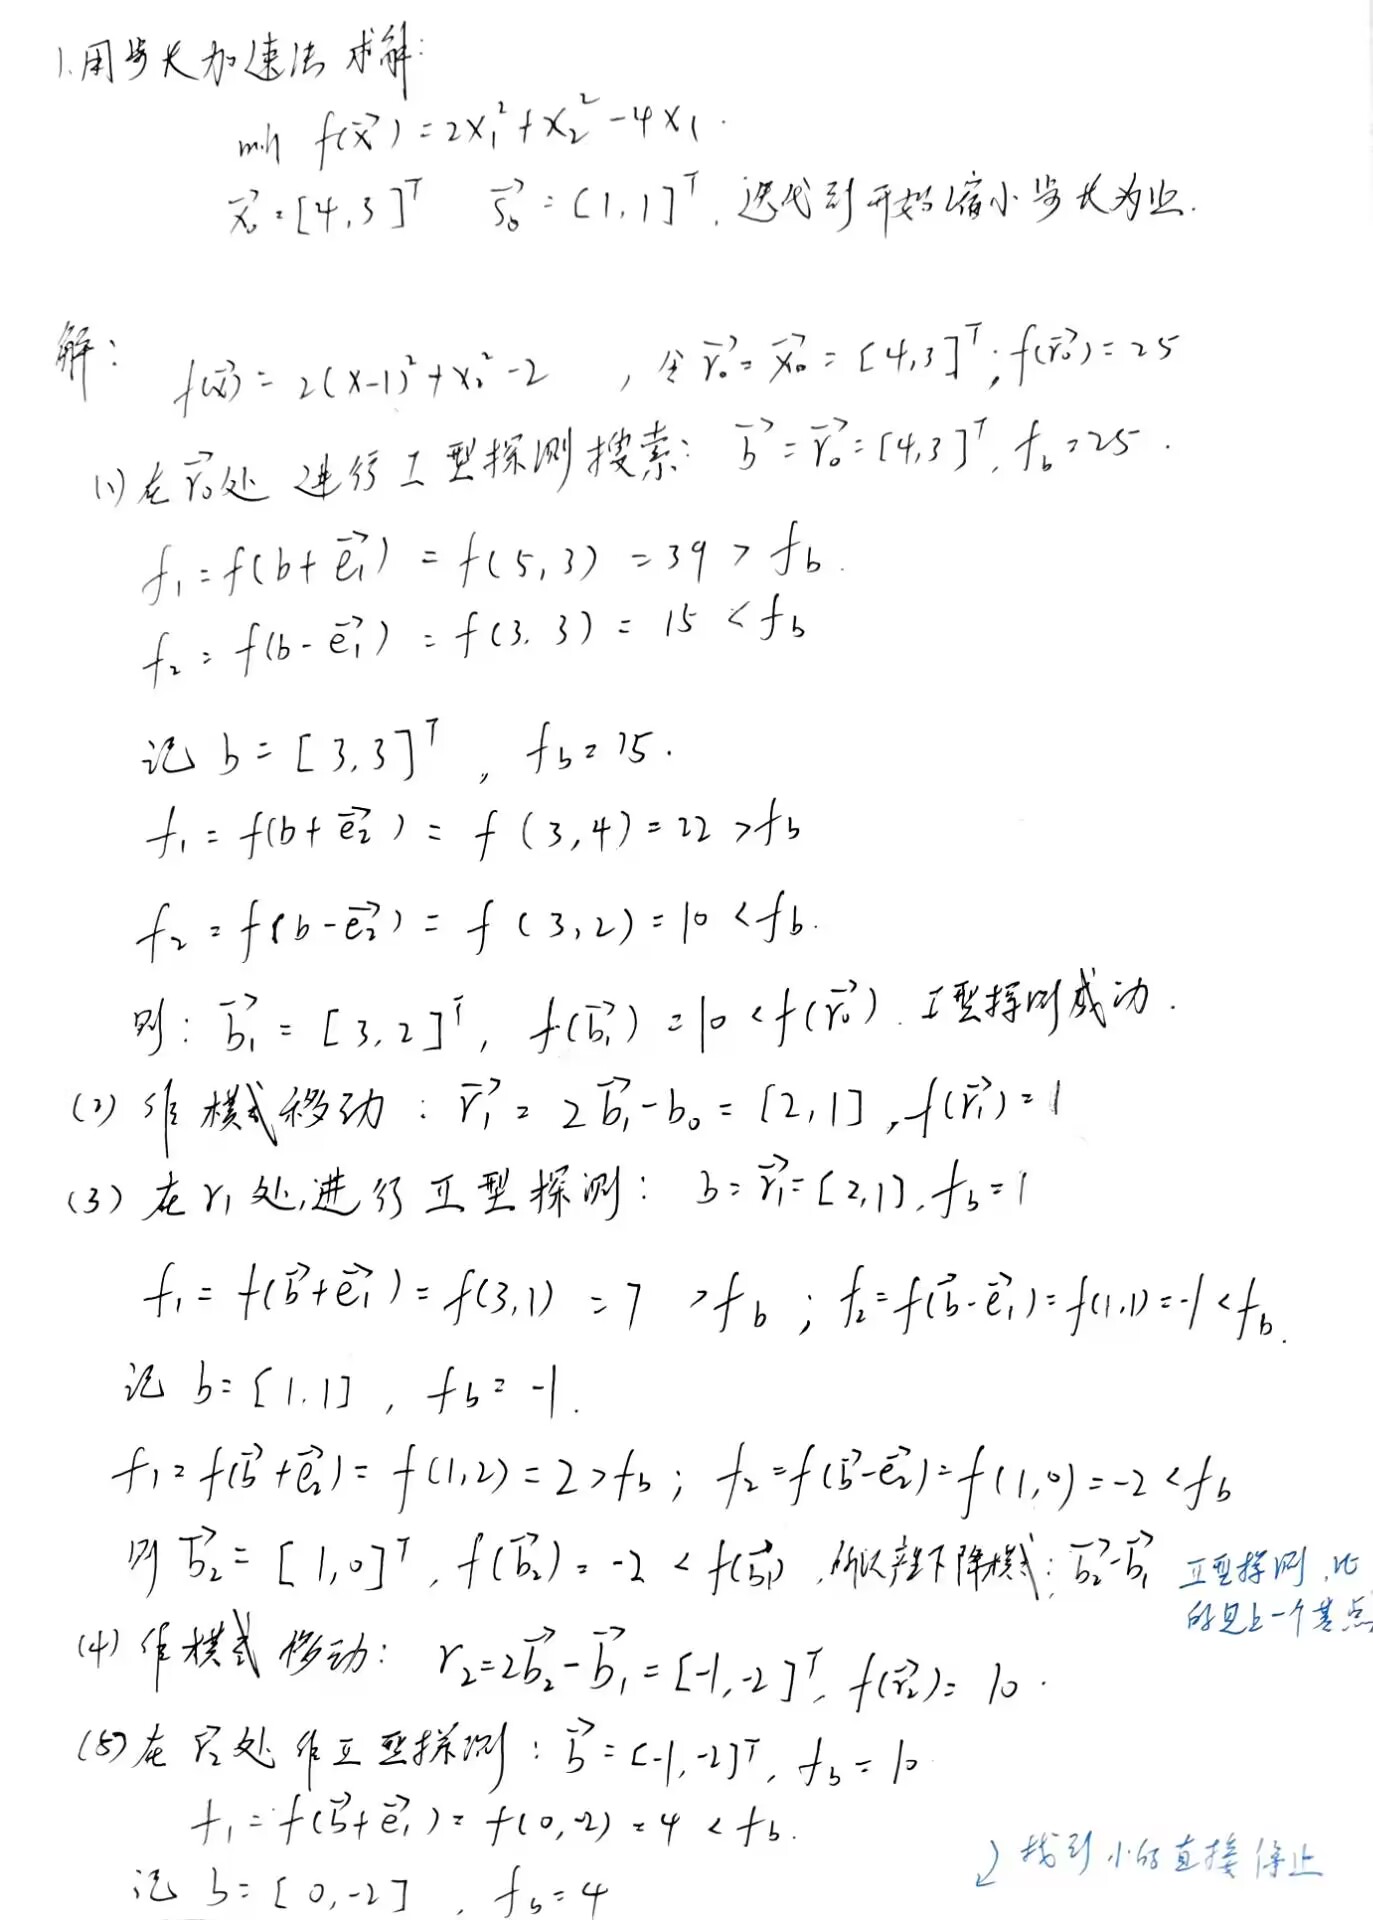 1.用步长加速法求解:
min f(x⃗)=2x₁²+x₂²-4x₁.
x⃗₀=[4,3]ᵀ s⃗₀=[1,1]ᵀ. 迭代到开始缩小步长为止.
解:
f(x⃗)=2(x-1)²+x₂²-2 , 令r⃗₀=x⃗₀=[4,3]ᵀ; f(r⃗₀)=25
(1)在r⃗₀处 进行I型探测搜索: b⃗=r⃗₀=[4,3]ᵀ, f_b=25.
f₁=f(b+e⃗₁)=f(5,3)=39>f_b.
f₂=f(b-e⃗₁)=f(3,3)=15<f_b
记 b=[3,3]ᵀ , f_b=15.
f₁=f(b+e⃗₂)=f(3,4)=22>f_b
f₂=f(b-e⃗₂)=f(3,2)=10<f_b.
则: b⃗₁=[3,2]ᵀ, f(b⃗₁)=10<f(r⃗₀). I型探测成功.
(2) 作模式移动: r⃗₁=2b⃗₁-b₀=[2,1], f(r⃗₁)=1
(3) 在r₁处,进行II型探测: b=r⃗₁=[2,1], f_b=1
f₁=f(b⃗+e⃗₁)=f(3,1)=7>f_b ; f₂=f(b⃗-e⃗₁)=f(1,1)=-1<f_b.
记 b=[1,1] , f_b=-1.
f₁=f(b⃗+e⃗₂)=f(1,2)=2>f_b; f₂=f(b⃗-e⃗₂)=f(1,0)=-2<f_b
则 b⃗₂=[1,0]ᵀ, f(b⃗₂)=-2<f(b⃗₁) ,所以产生下降模式: b⃗₂-b⃗₁ II型探测,比
的是上一个基点
(4) 作模式移动: r₂=2b⃗₂-b⃗₁=[-1,-2]ᵀ, f(r⃗₂)=10.
(5) 在r⃗₂处作II型探测: b⃗=[-1,-2]ᵀ, f_b=10
f₁=f(b⃗+e⃗₁)=f(0,-2)=4<f_b.
找到小的直接停止
记 b=[0,-2] , f_b=4